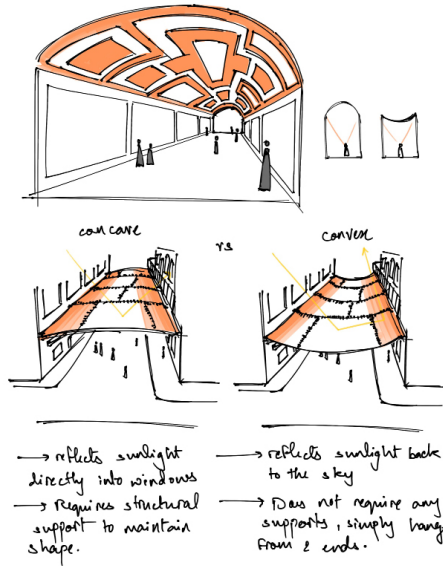 concave vs convex
→ reflects sunlight
directly into windows
→ Requires structural
support to maintain
shape.
→ reflects sunlight back
to the sky
→ Does not require any
supports, simply hang
from 2 ends.